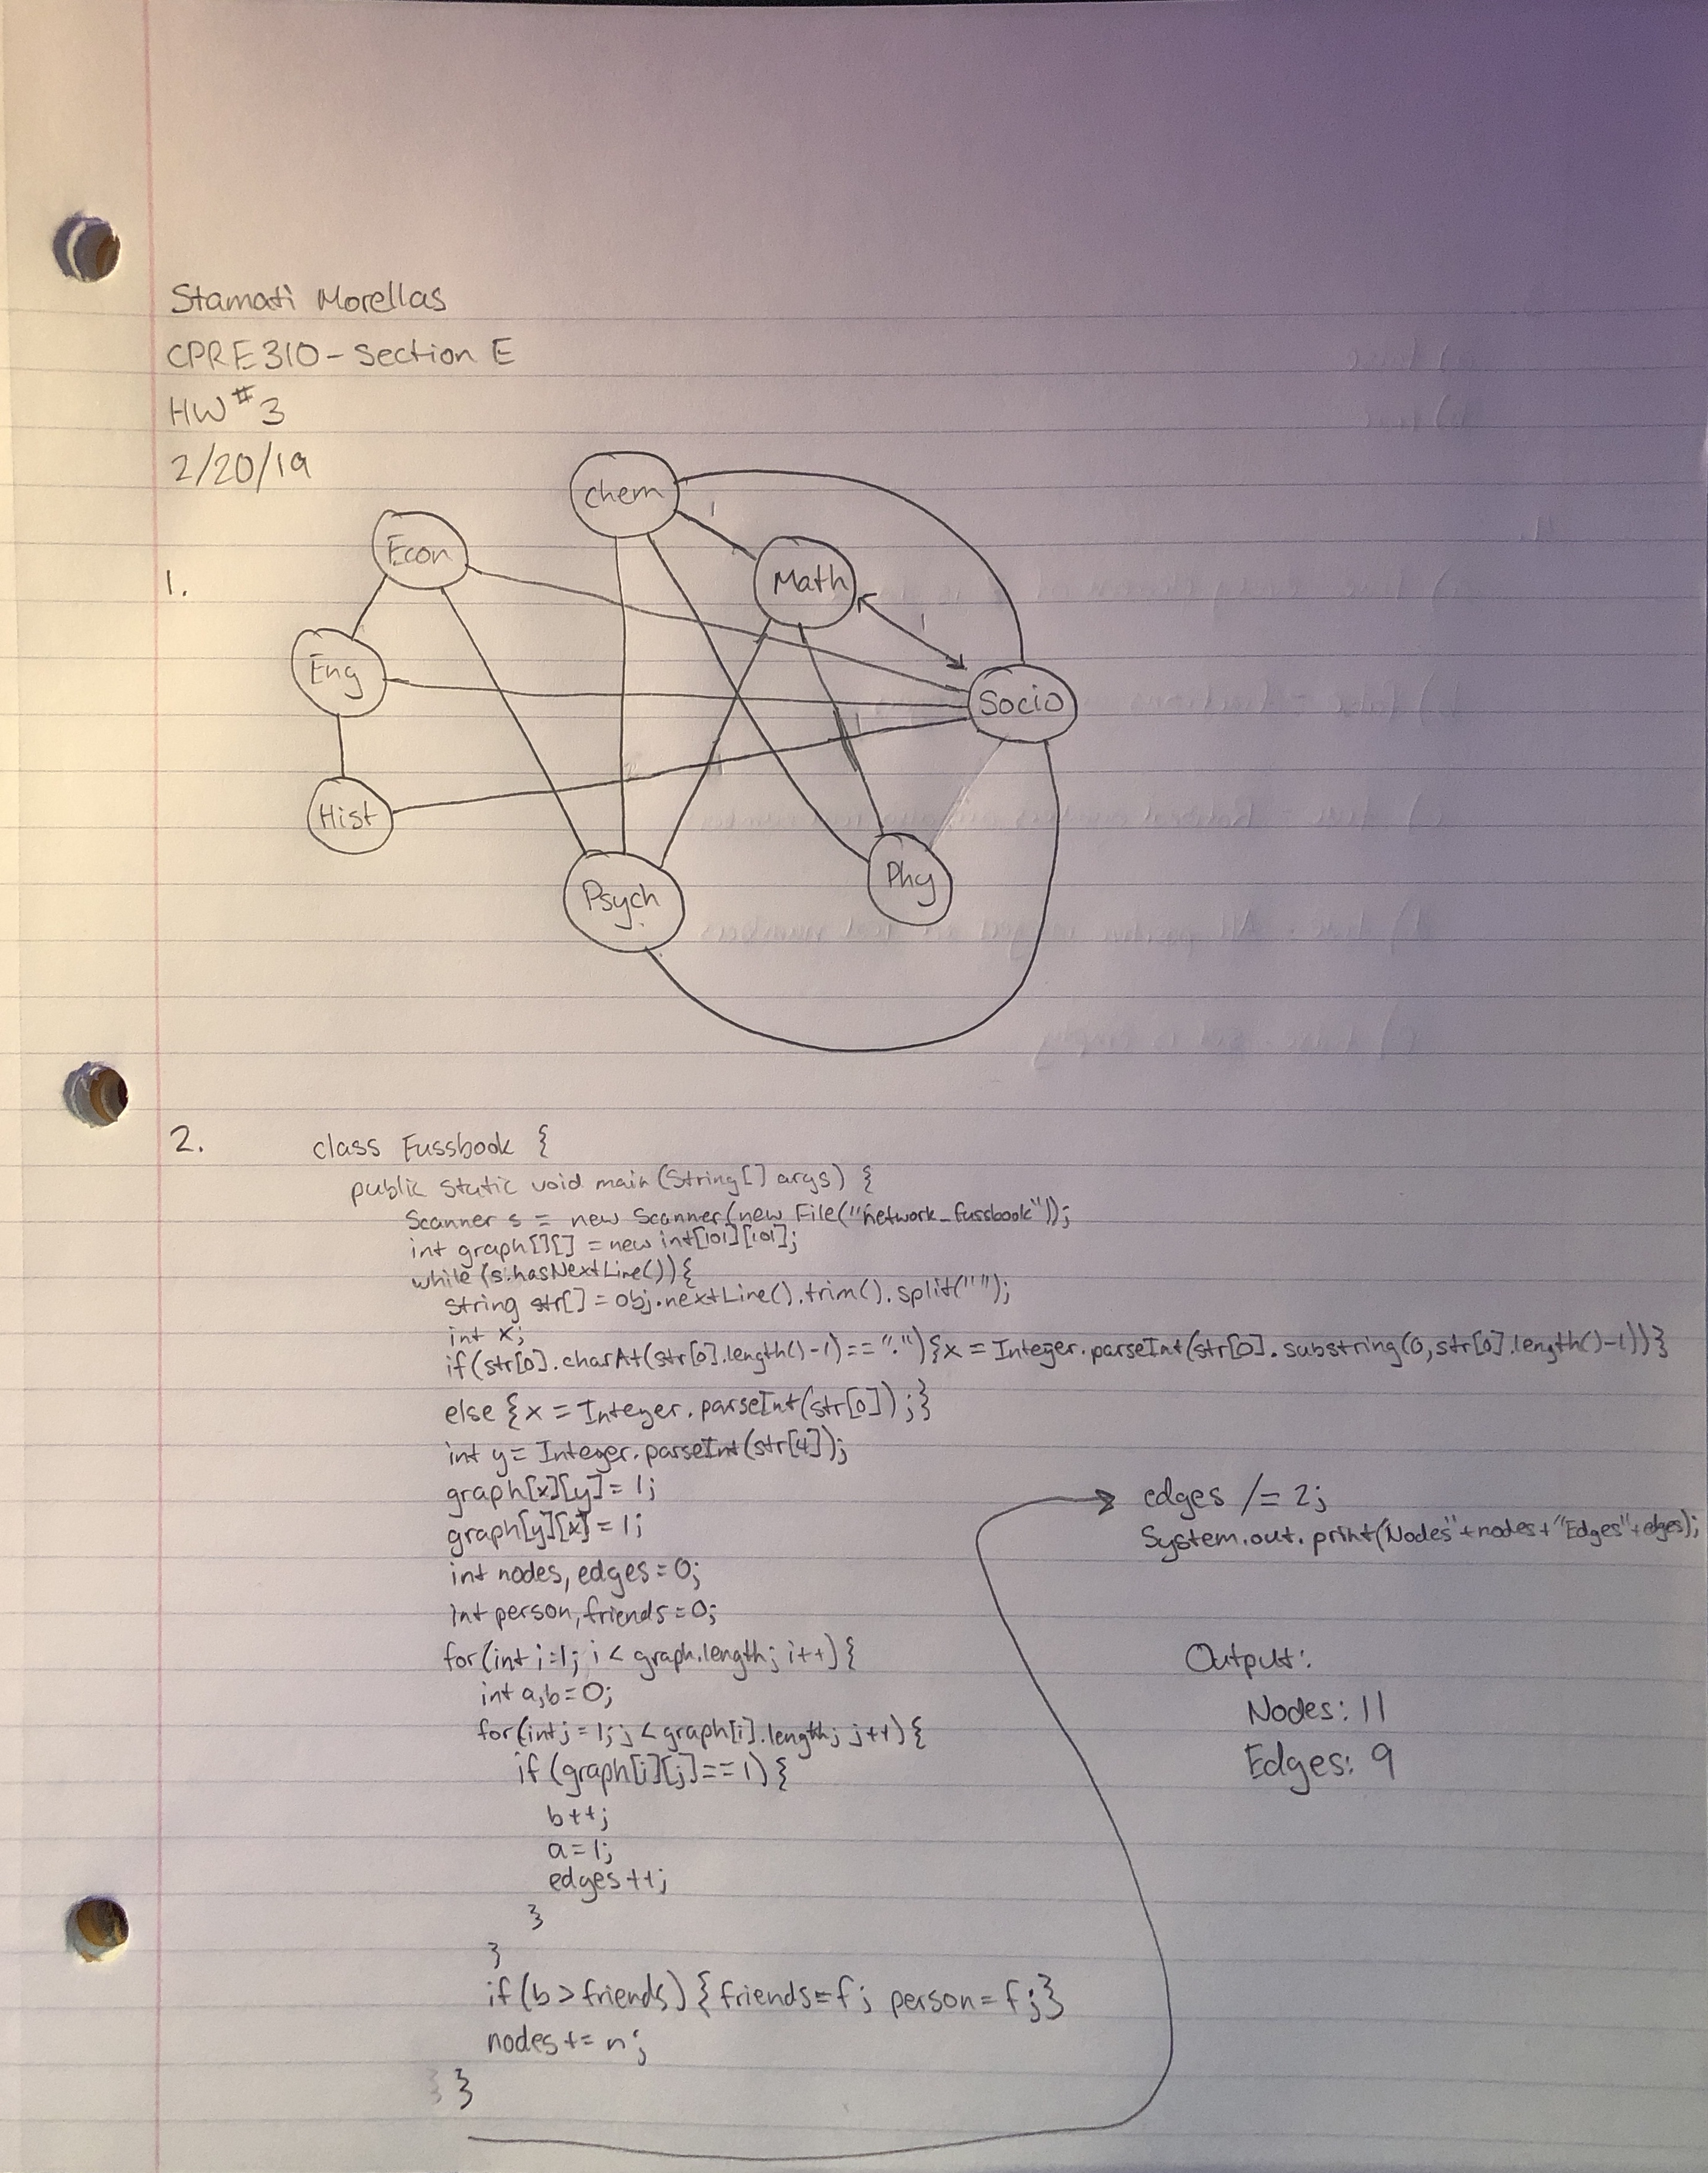 Stamati Morellas
CPRE310 - Section E
HW #3
2/20/19
1.
Chem
Econ
Math
Eng
Socio
Hist
Psych
Phy
1
1
2.
class Fussbook {
public static void main (String[] args) {
Scanner s = new Scanner(new File("network_fussbook"));
int graph[][] = new int[101][101];
while (s.hasNextLine()){
String str[] = obj.nextLine().trim().split("");
int x;
if(str[0].charAt(str[0].length()-1)=="."){x = Integer.parseInt(str[0].substring(0,str[0].length()-1))}
else {x = Integer.parseInt(str[0]);}
int y= Integer.parseInt(str[4]);
graph[x][y]= 1;
graph[y][x]=1;
int nodes, edges=0;
int person, friends=0;
for(int i=1; i < graph.length; i++){
int a,b=0;
for(int j=1; j < graph[i].length; j++){
if (graph[i][j]==1){
b++;
a=1;
edges++;
}
}
if(b>friends){friends=f; person=f;}
nodes += n;
} }
edges /= 2;
System.out.print("Nodes"+nodes+"Edges"+edges);
Output:
Nodes: 11
Edges: 9